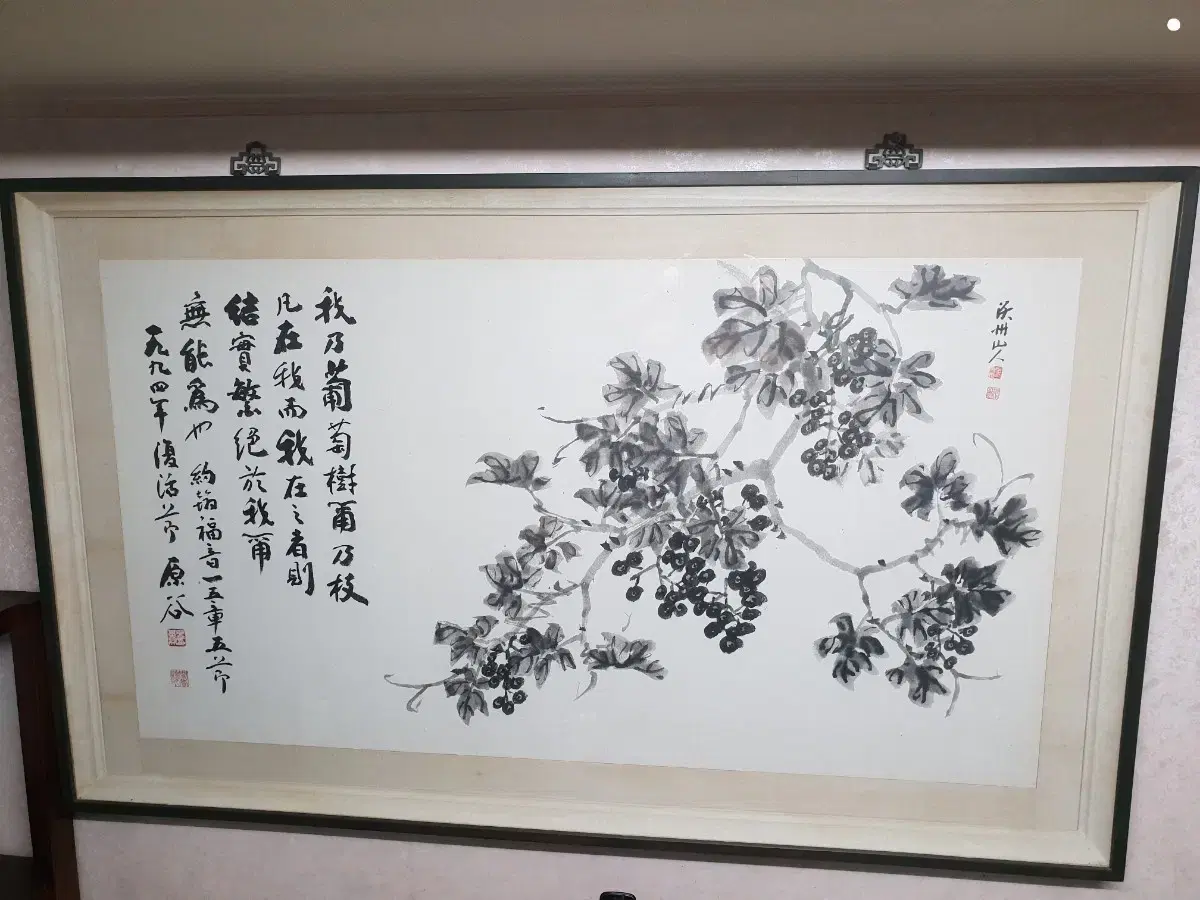 州山人
我乃葡萄樹爾乃枝
凡在我而我在之者則
結實繁絕於我爾
無能爲也 約翰福音一五章五節
一九九四年復活節 原谷